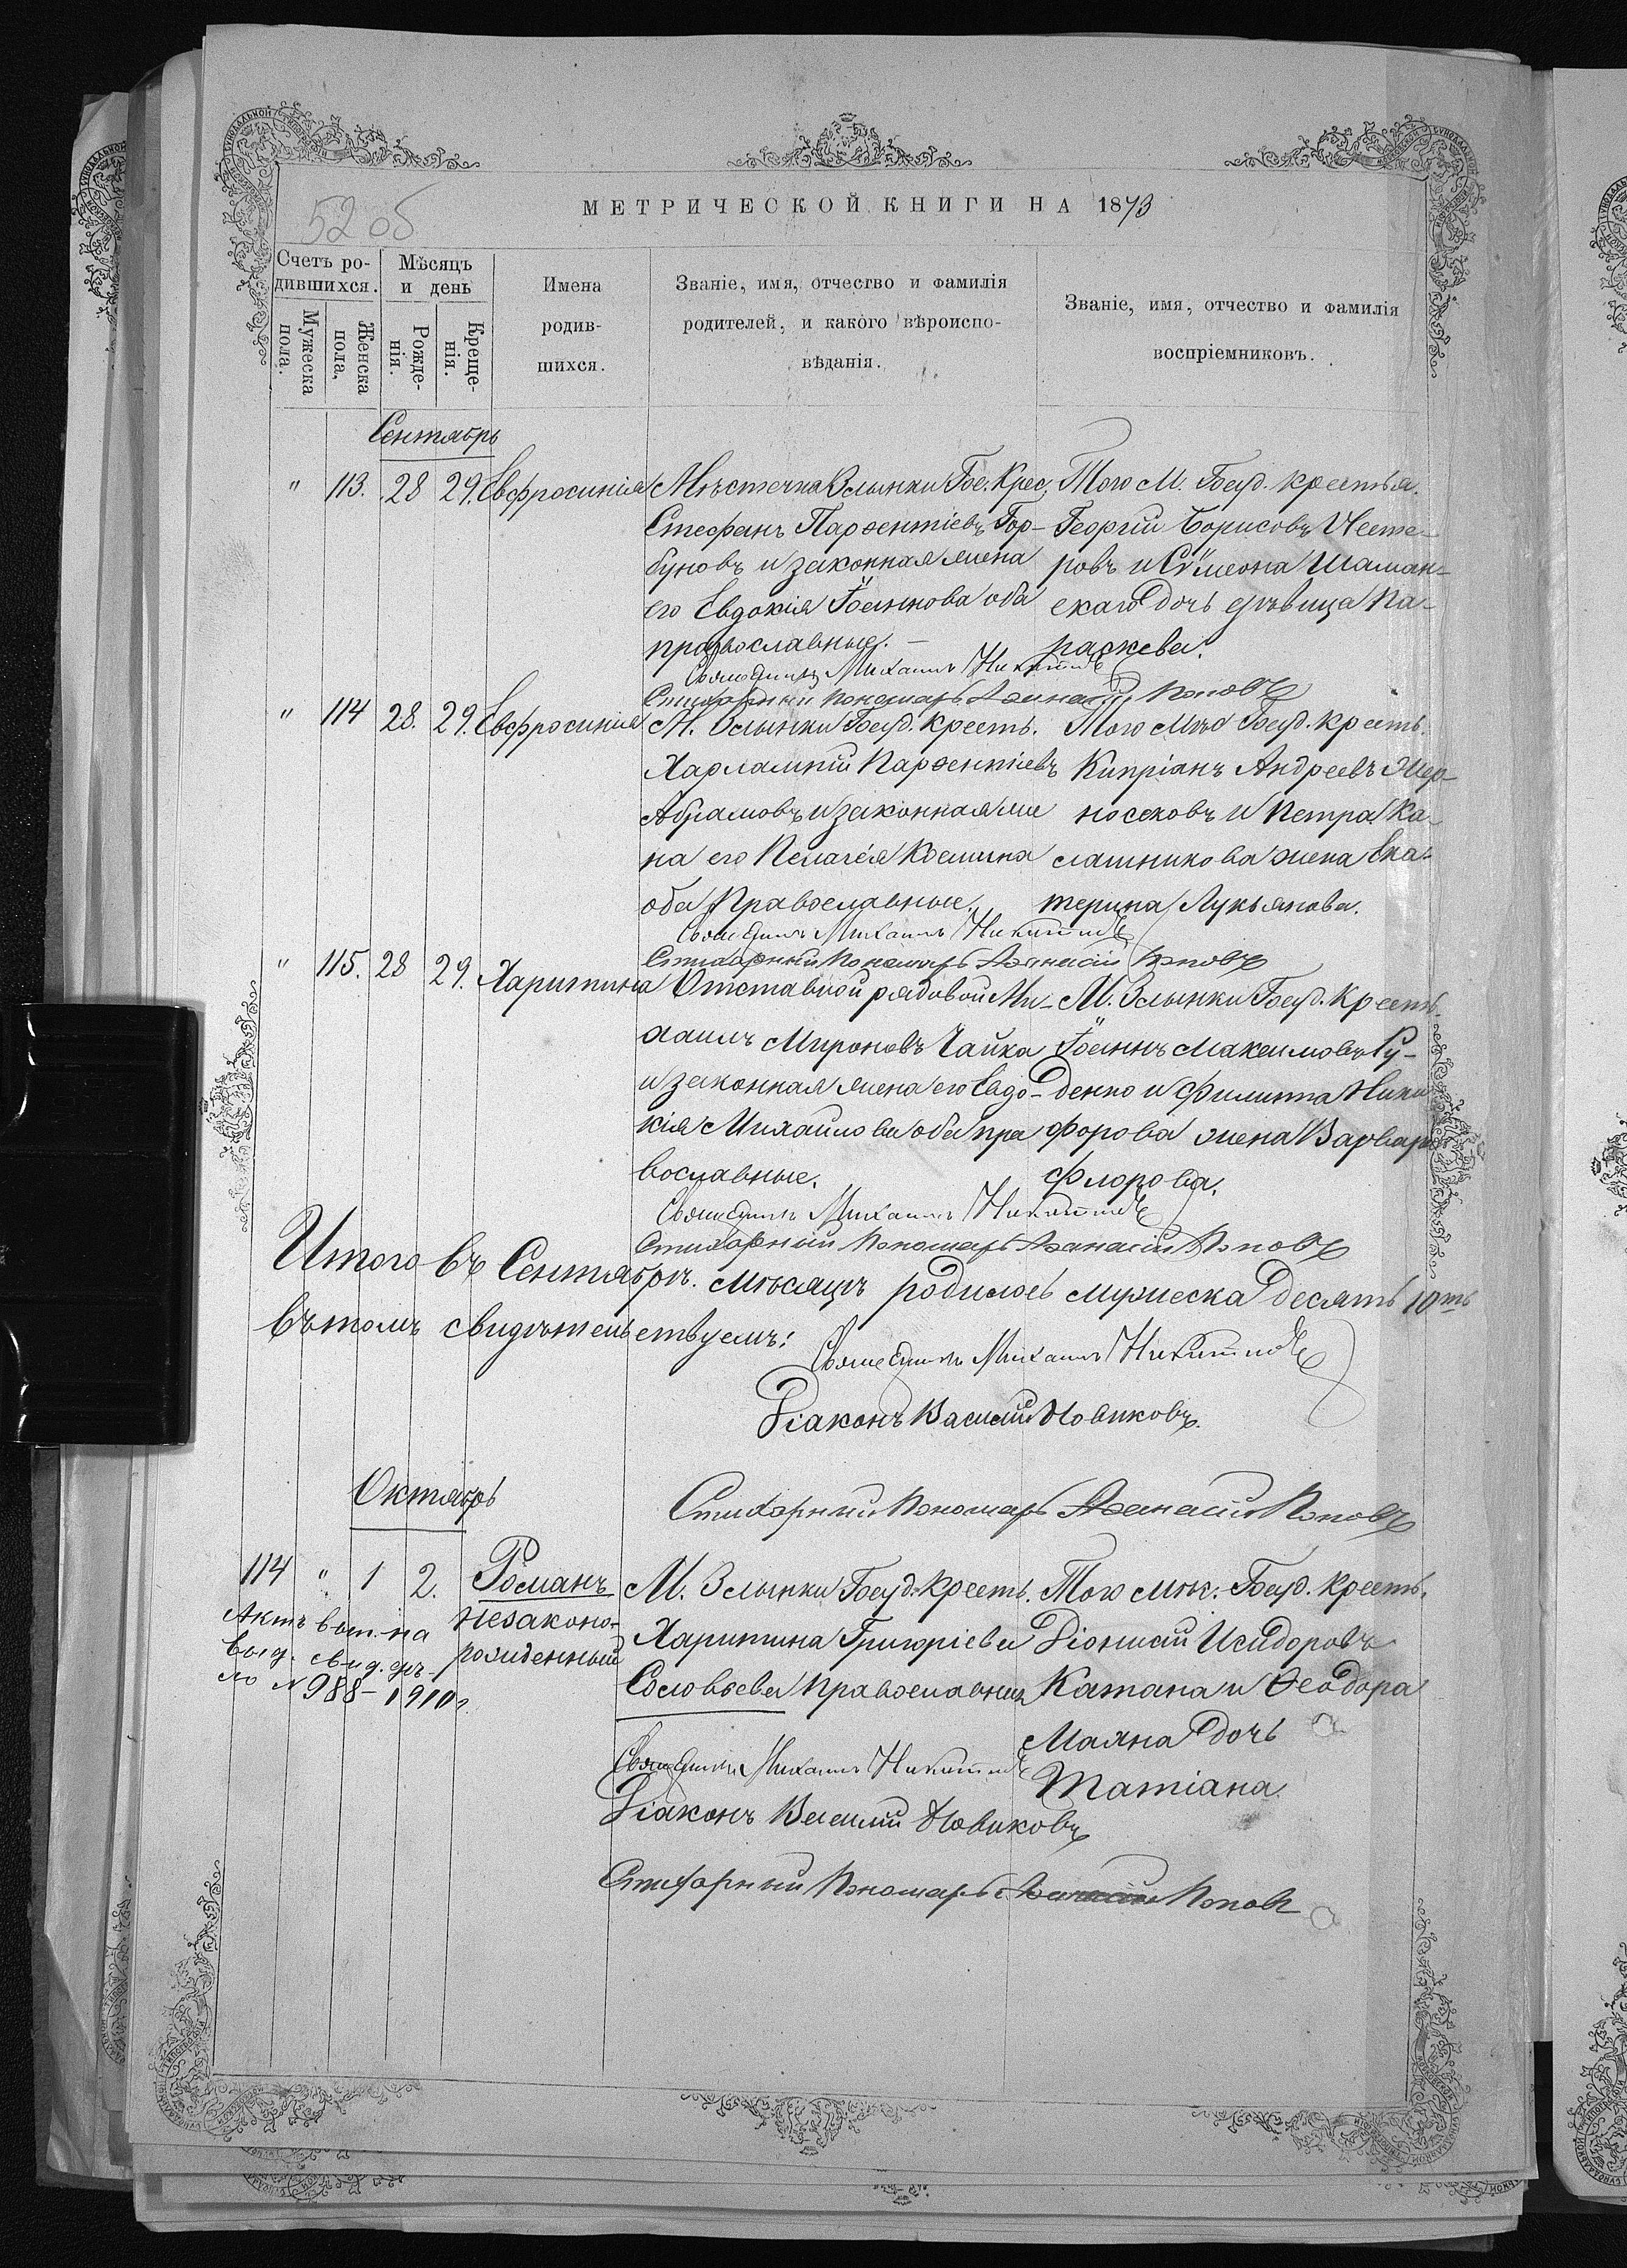 52 об
МЕТРИЧЕСКОЙ КНИГИ НА 1873
Счетъ ро-
дившихся.
Мужеска
пола.
Женска
пола.
Мѣсяцъ
и день
Рожде-
нія.
Креще-
нія.
Имена
родив-
шихся.
Званіе, имя, отчество и фамилія
родителей, и какого вѣроиспо-
вѣданія.
Званіе, имя, отчество и фамилія
воспріемниковъ.
Сентябрь
" 113. 28 29. Евфросинія
Мѣстечка Злынки Гос. Крес.
Стефанъ Парѳентіевъ Гор-
буновъ и законная жена
его Евдокія Іоаннова оба
православные. –
Того М. Госуд. крестья.
Георгій Борисовъ Несте-
ровъ и Сѵмеона Шаман-
скаго дочь дѣвица Па-
раскева.
Священникъ Михаилъ Никитинъ
Стихарный Пономарь Аѳанасій Поповъ
" 114 28. 29. Евфросинія
М. Злынки Госуд. крест.
Харлампій Парѳентіевъ
Абрамовъ и законная же
на его Пелагея Космина
оба Православные.
Того Мѣс Госуд. крест.
Кипріанъ Андреевъ Жер-
носековъ и Петра Ка-
лашникова жена Ека-
терина Лукьянова.
Священникъ Михаилъ Никитинъ
Стихарный Пономарь Аѳанасій Поповъ
" 115. 28 29. Харитина
Отставной рядовой Ми-
хаилъ Мироновъ Чайка
и законная жена его Евдо-
кія Михайлова оба пра
вославные.
М. Злынки Госуд. Крест.
Іоаннъ Максимовъ Ру-
денко и Филиппа Ники
форова жена Варвара
Флорова.
Священникъ Михаилъ Никитинъ
Стихарный Пономарь Аѳанасій Поповъ
Итого въ Сентябрѣ мѣсяцѣ родилось мужеска десять 10ть
въ томъ свидѣтельствуемъ:
Священникъ Михаилъ Никитинъ
Діаконъ Василій Новиковъ.
Стихарный Пономарь Аѳанасій Поповъ
Октябрь
114 " 1 2. Романъ
незаконо-
рожденный
Актъ вып. на
выд. свид.
за № 988 – 1910 г.
М. Злынки Госуд. Крест.
Харитина Григоріева
Соловьева православная
Того мѣс. Госуд. крест.
Діонисій Исидоровъ
Катана и Ѳеодора
Маяна дочь
Татіана.
Священникъ Михаилъ Никитинъ
Діаконъ Василій Новиковъ
Стихарный Пономарь Аѳанасій Поповъ